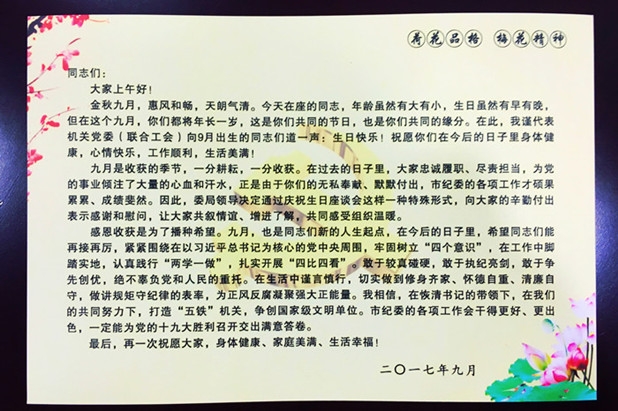 荷花品格 梅花精神
同志们：
大家上午好！
金秋九月，惠风和畅，天朗气清。今天在座的同志，年龄虽然有大有小，生日虽然有早有晚，
但在这个九月，你们都将年长一岁，这是你们共同的节日，也是你们共同的缘分。在此，我谨代表
机关党委（联合工会）向9月出生的同志们道一声：生日快乐！祝愿你们在今后的日子里身体健
康，心情快乐，工作顺利，生活美满！
九月是收获的季节，一分耕耘，一分收获。在过去的日子里，大家忠诚履职、尽责担当，为党
的事业倾注了大量的心血和汗水，正是由于你们的无私奉献、默默付出，市纪委的各项工作才硕果
累累、成绩斐然。因此，委局领导决定通过庆祝生日座谈会这样一种特殊形式，向大家的辛勤付出
表示感谢和慰问，让大家共叙情谊、增进了解，共同感受组织温暖。
感恩收获是为了播种希望。九月，也是同志们新的人生起点，在今后的日子里，希望同志们能
再接再厉，紧紧围绕在以习近平总书记为核心的党中央周围，牢固树立“四个意识”，在工作中脚
踏实地，认真践行“两学一做”，扎实开展“四比四看”。敢于较真碰硬，敢于执纪亮剑，敢于争
先创优，绝不辜负党和人民的重托。在生活中谨言慎行，切实做到修身齐家、怀德自重、清廉自
守，做讲规矩守纪律的表率，为正风反腐凝聚强大正能量。我相信，在恢清书记的带领下，在我们
的共同努力下，打造“五铁”机关，争创国家级文明单位。市纪委的各项工作会干得更好、更出
色，一定能为党的十九大胜利召开交出满意答卷。
最后，再一次祝愿大家，身体健康、家庭美满、生活幸福！
二〇一七年九月